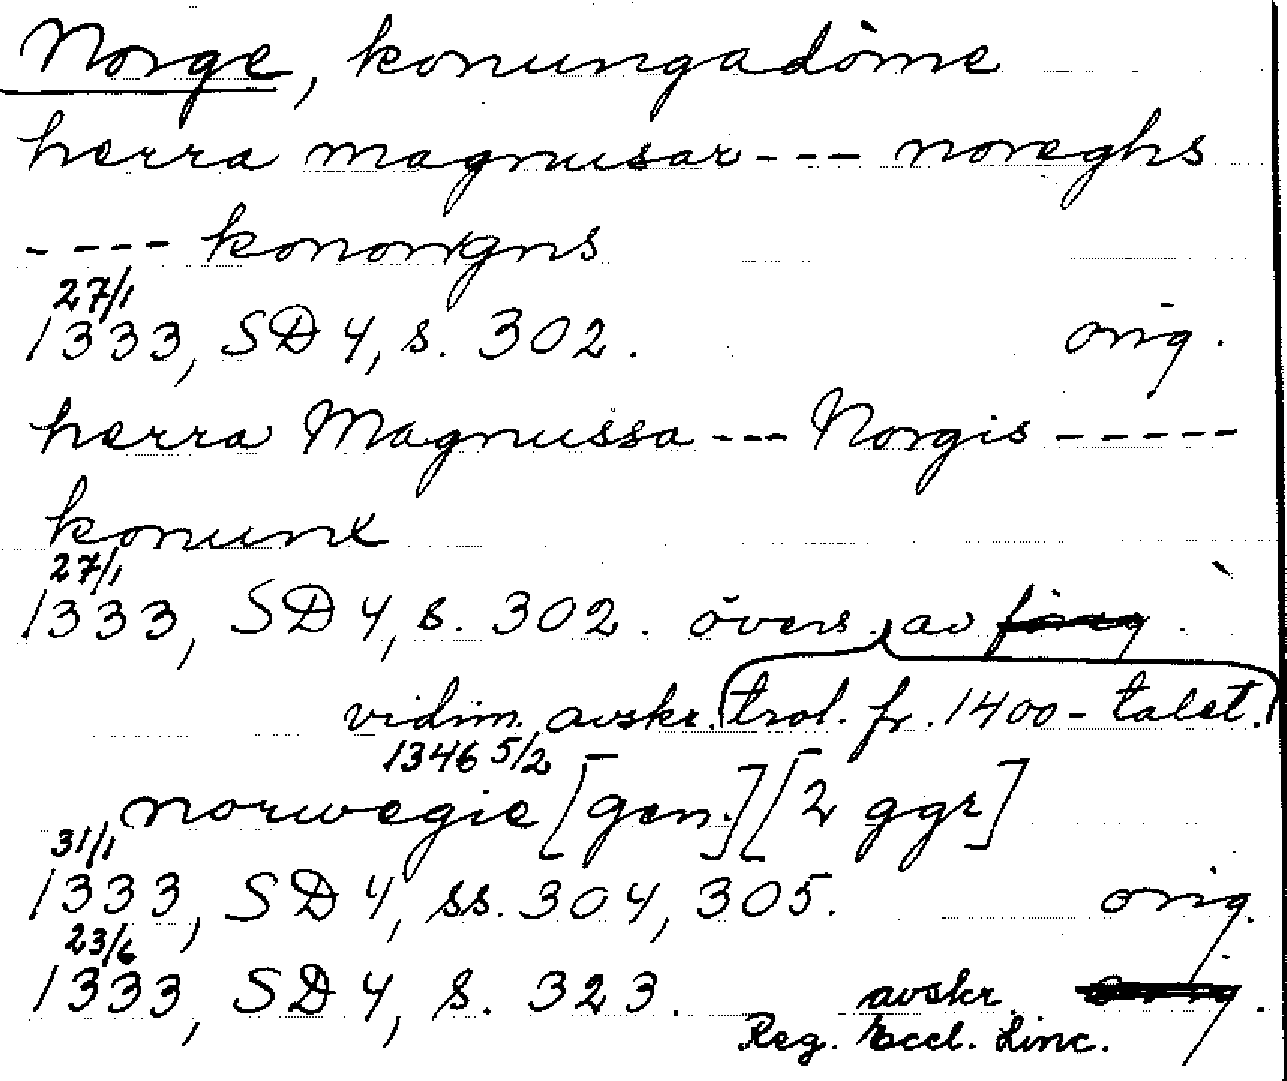 Norge, konungadöme
herra magnusar --- noreghs
---- konongns
27/1
1333, SD 4, s. 302. orig.
herra Magnussa --- Norgis -----
konunx
27/1
1333, SD 4, s. 302. övers. av föreg.
vidim. avskr. trol. fr. 1400-talet.
1346 5/2
norwegie [gen.] [2 ggr]
31/1
1333, SD 4, ss. 304, 305. orig.
23/6
1333, SD 4, s. 323. avskr. orig.
Reg. Eccl. Linc.